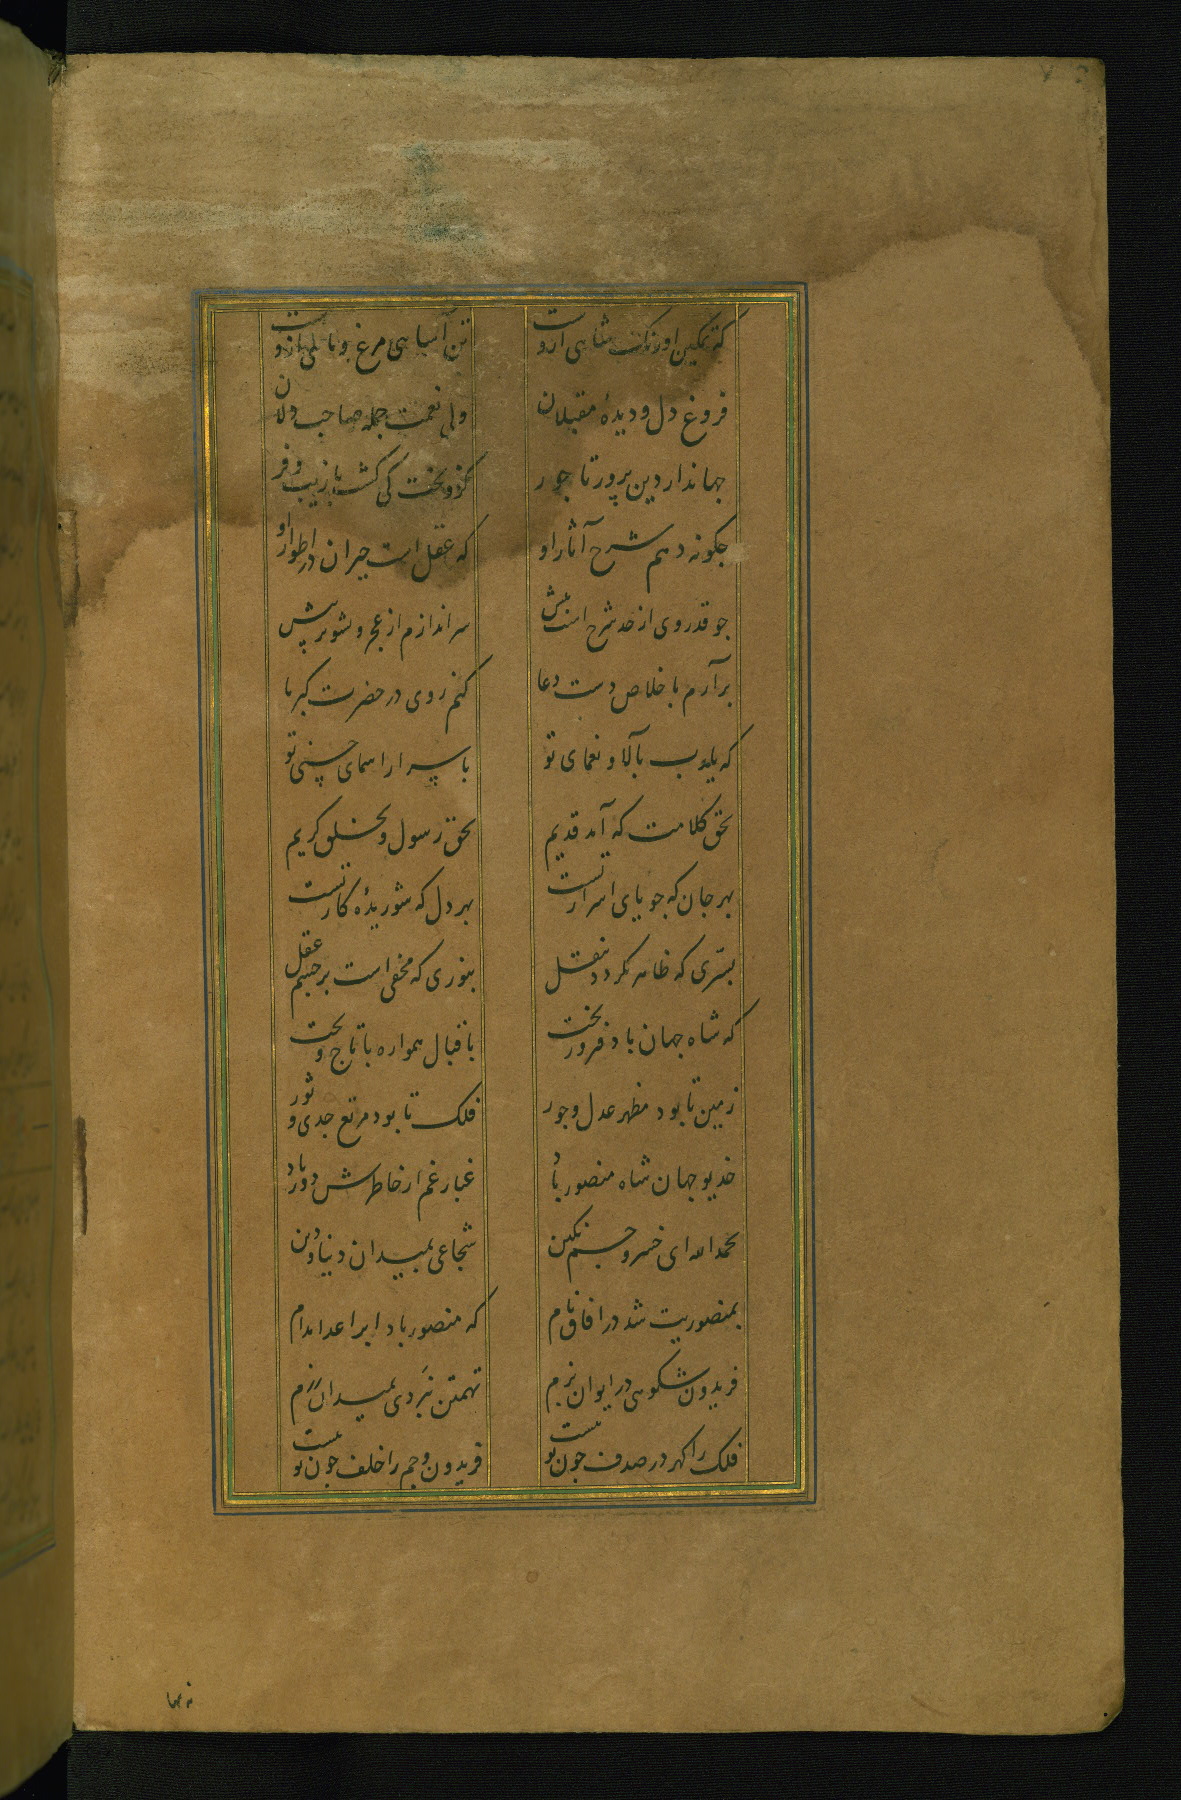 که تمکین اورنک شاهی ازوست تن آسایی مرغ و ماهی ازوست
فروغ دل و دیدهٔ مقبلان ولی نعمت جمله صاحب دلان
جهاندار دین پرور تاجور کزو تخت کی کشت با زیب و فر
جکونه دهم شرح آثار او که عقل است حیران در اطوار او
جو قدر وی از حد شرح است بیش سر اندازم از عجز و تشویر پیش
برآرم باخلاص دست دعا کنم روی در حضرت کبریا
که یارب بآلا و نعمای تو باسرار اسمای حسنی تو
بحق کلامت که آمد قدیم بحق رسول و بخلق کریم
بهر جان که جویای اسرار تست بهر دل که شوریدهٔ کار تست
بسرّی که ظاهر نکردد بنقل بنوری که مخفی است بر جشم عقل
که شاه جهان باد فیروز بخت باقبال همواره با تاج و تخت
زمین تا بود مظهر عدل و جور فلک تا بود مرتع جدی و ثور
خدیو جهان شاه منصور باد غبار غم از خاطرش دور باد
بحمدالله ای خسرو جم نکین شجاعی بمیدان دنیا و دین
بمنصوریت شد در افاق نام که منصور بادا بر اعدا مدام
فریدون شکوهی در ایوان بزم تهمتن نبردی بمیدان رزم
فلک را کهر در صدف جون تو نیست فریدون و جم را خلف جون تو نیست
نه تنها